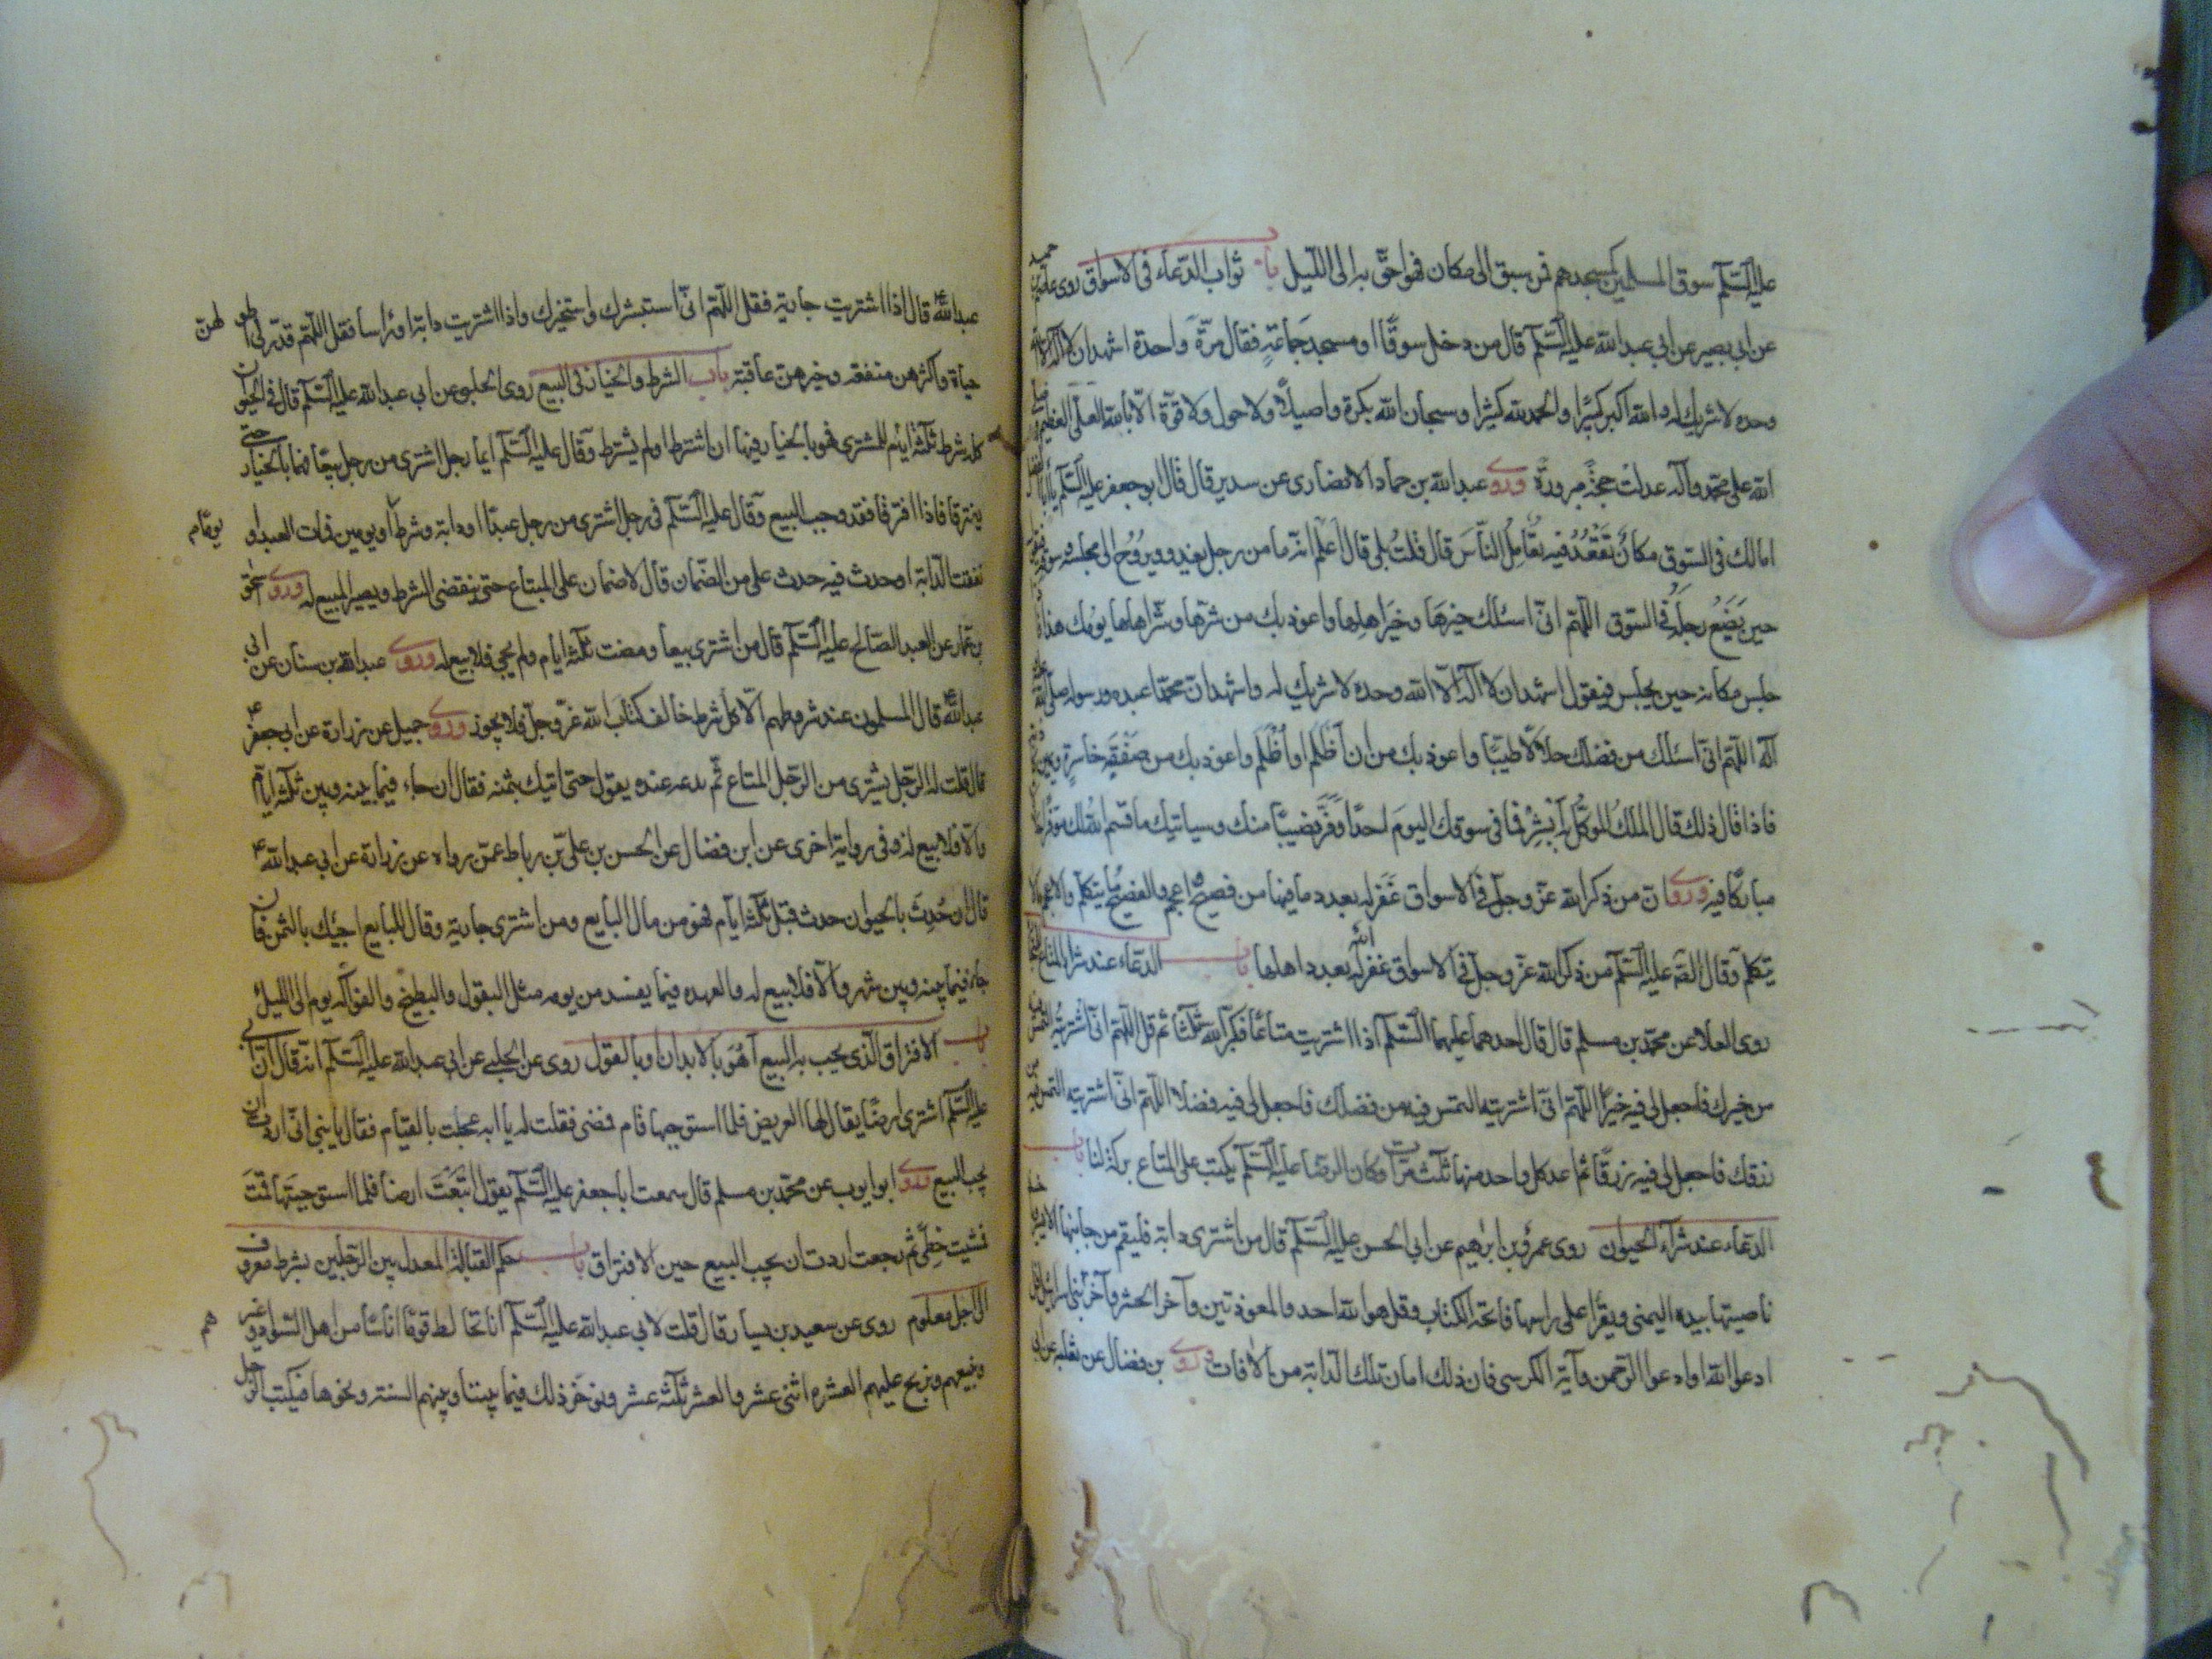 عليه السلم سوق المسلمين كمسجدهم فمن سبق الى مكان فهو احق به الى الليل باب ثواب الدعاء فى الاسواق روى عاصم بن حميد
عن ابى بصير عن ابى عبد الله عليه السلم قال من دخل سوقا او مسجد جماعة فقال مرة واحدة اشهد ان لا اله الا الله
وحده لا شريك له والله اكبر كبيرا والحمد لله كثيرا وسبحان الله بكرة واصيلا ولا حول ولا قوة الا بالله العلى العظيم وصلى
الله على محمد وآله عدلت حجة مبرورة وروى عبد الله بن حماد الانصارى عن سدير قال قال ابو جعفر عليه السلم يا ابا الفضل
اما لك فى السوق مكان تقعد فيه تعامل الناس قال قلت بلى قال اعلم انه ما من رجل يغدو ويروح الى مجلسه وسوقه فيقول
حين يضع رجله فى السوق اللهم انى اسئلك خيرها وخير اهلها واعوذ بك من شرها وشر اهلها يومك هذا
جلس مكانه حين يجلس فيقول اشهد ان لا اله الا الله وحده لا شريك له واشهد ان محمدا عبده ورسوله صلى الله عليه
آله اللهم انى اسئلك من فضلك حلالا طيبا واعوذ بك من ان اظلم او اظلم واعوذ بك من صفقة خاسرة ويمين
فاذا قال ذلك قال الملك الموكل به ابشر فما فى سوقك اليوم احدا وفر نصيبا منك وسياتيك ما قسم الله لك موفرا
مباركا فيه وروى ان من ذكر الله عز وجل فى الاسواق غفر له بعدد ما فيها من فصيح واعجم والفصيح ما يتكلم والاعجم ما لا
يتكلم وقال الصه عليه السلم من ذكر الله عز وجل فى الاسواق غفر الله له بعدد اهلها باب الدعاء عند شراء المتاع
روى العلا عن محمد بن مسلم قال قال احدهما عليهما السلم اذا اشتريت متاعا فكبر الله ثلثا ثم قل اللهم انى اشتريته التمس فيه
من خيرك فاجعل لى فيه خيرا اللهم انى اشتريته التمس فيه من فضلك فاجعل لى فيه فضلا اللهم انى اشتريته التمس فيه من
رزقك فاجعل لى فيه رزقا ثم اعد كل واحد منها ثلث مرات وكان الرضا عليه السلم يكتب على المتاع بركة لنا باب
الدعاء عند شراء الحيوان روى عمرو بن ابرهيم عن ابى الحسن عليه السلم قال من اشترى دابة فليقم من جانبها الايسر
ناصيتها بيده اليمنى ويقرا على راسها فاتحة الكتاب وقل هو الله احد والمعوذتين وآخر الحشر وآخر بنى اسرائيل قل
ادعوا الله او ادعوا الرحمن وآية الكرسى فان ذلك امان تلك الدابة من الآفات وروى بن فضال عن ثعلبة عن ابى
عبد الله ع قال اذا اشتريت جارية فقل اللهم انى استبشرك واستخيرك واذا اشتريت دابة او راسا فقل اللهم قدر لى اطولهن
حياة واكثرهن منفعة وخيرهن عاقبة باب الشرط والخيار فى البيع روى الحلبى عن ابى عبد الله عليه السلم قال فى الحيوان
كله شرط ثلثة ايام للمشترى فهو بالخيار فيها ان اشترط او لم يشترط وقال عليه السلم ايما رجل اشترى من رجل بيعا فهما بالخيار حتى
يفترقا فاذا افترقا فقد وجب البيع وقال عليه السلم فى رجل اشترى من رجل عبدا او دابة وشرط يوما او يومين فمات العبد او
نفقت الدابة او حدث فيه حدث على من الضمان قال لا ضمان على المبتاع حتى ينقضى الشرط ويصير المبيع له وروى اسحق
بن عمار عن العبد الصالح عليه السلم قال من اشترى بيعا ومضت ثلثة ايام ولم يجئ فلا بيع له وروى عبد الله بن سنان عن ابى
عبد الله ع قال المسلمون عند شروطهم الا كل شرط خالف كتاب الله عز وجل فلا يجوز وروى جميل عن زرارة عن ابى جعفر ع
قال قلت له الرجل يشترى من الرجل المتاع ثم يدعه عنده يقول حتى اتيك بثمنه فقال ان جاء فيما بينه وبين ثلثة ايام
والا فلا بيع له وفى رواية اخرى عن ابن فضال عن الحسن بن على بن رباط عمن رواه عن زرارة عن ابى عبد الله ع
قال ان حدث بالحيوان حدث قبل ثلثة ايام فهو من مال البايع ومن اشترى جارية وقال للبايع اجيئك بالثمن فان
جاء فيما بينه وبين شهر والا فلا بيع له والعهدة فيما يفسد من يومه مثل البقول والبطيخ والفواكه يوم الى الليل
باب الافتراق الذى يجب به البيع اهو بالابدان او بالقول روى عن الحلبى عن ابى عبد الله عليه السلم انه قال ان ابى
عليه السلم اشترى ارضا يقال لها العريض فلما استوجبها قام فمضى فقلت له يا ابه عجلت بالقيام فقال يا بنى انى اردت ان
يجب البيع وروى ابو ايوب عن محمد بن مسلم قال سمعت ابا جعفر عليه السلم يقول ابتعت ارضا فلما استوجبتها قمت
فمشيت خطى ثم رجعت اردت ان يجب البيع حين الافتراق باب حكم القبالة المعدل بين الرجلين بشرط معروف
الى اجل معلوم روى عن سعيد بن يسار قال قلت لابى عبد الله عليه السلم انا نخالط قوما اناسا من اهل السواد وغيرهم
ونبيعهم ونربح عليهم العشرة اثنى عشر والعشر ثلثة عشر ونوخر ذلك فيما بيننا وبينهم السنة ونحوها فيكتب الرجل